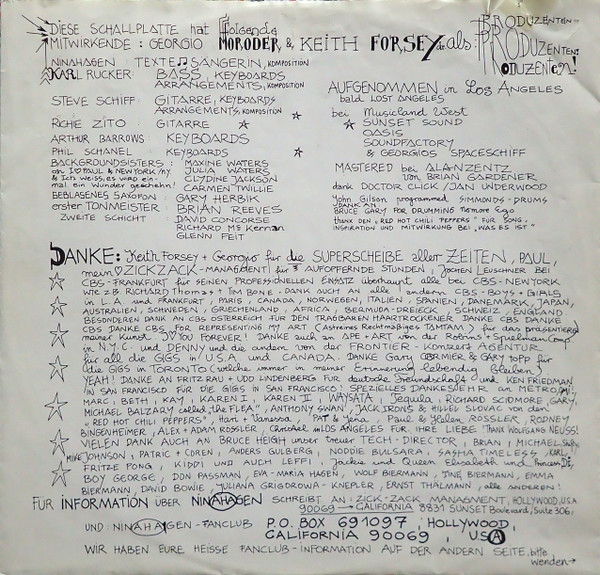 DIESE SCHALLPLATTE hat folgende
MITWIRKENDE: GEORGIO MORODER & KEITH FORSEY als: PRODUZENTEN!
PRODUZENTEN
PRODUZENTEN!
NINAHAGEN: TEXTE SÄNGERIN, KOMPOSITION
KARL RUCKER: BASS, KEYBOARDS
ARRANGEMENTS, KOMPOSITION
STEVE SCHIFF: GITARRE, KEYBOARDS
ARRANGEMENTS, KOMPOSITION
RICHIE ZITO: GITARRE
ARTHUR BARROWS: KEYBOARDS
PHIL SCHANEL: KEYBOARDS
BACKGROUNDSISTERS: MAXINE WATERS
on I♡PAUL & NEW YORK/NY JULIA WATERS
& Ich weiss, es wird ein- CLYDINE JACKSON
mal ein Wunder geschehn! CARMEN TWILLIE
GEBLASENES SAXOFON: GARY HERBIK
erster TONMEISTER: BRIAN REEVES
ZWEITE SCHICHT: DAVID CONCORSE
RICHARD McKernan
GLENN FEIT
AUFGENOMMEN in Los ANGELES
bald LOST ANGELES
bei Musicland West
SUNSET SOUND
OASIS
SOUNDFACTORY
& GEORGIOS SPACESCHIFF
MASTERED bei ALAN ZENTZ
von BRIAN GARDENER
dank DOCTOR CLICK/JAN UNDERWOOD
John Gilson programmed SIMMONDS-DRUMS
DANK AN
BRUCE GARY FOR DRUMMING
thank den "RED HOT CHILI PEPPERS" FÜR SONG,
INSPIRATION UND MITWIRKUNG BEI "WAS ES IST"
DANKE: Keith FORSEY + Georgio für die SUPERSCHEIBE aller ZEITEN, PAUL,
mein ♡ ZICKZACK-MANAGMENT für AUFOPFERNDE STUNDEN, JOCHEN LEUSCHNER BEI
CBS-FRANKFURT für SEINEN PROFESSIONELLEN EINSATZ überhaupt alle bei CBS-NEW YORK
wie z.B. RICHARD Thomas + TIM BONE. DANK AUCH AN alle andern CBS-BOYS + GIRLS
in L.A. und FRANKFURT, PARIS, CANADA, NORWEGEN, ITALIEN, SPANIEN, DÄNEMARK, JAPAN,
AUSTRALIEN, SCHWEDEN, GRIECHENLAND, AFRICA, BERMUDA-DREIECK, SCHWEIZ, ENGLAND
BESONDEREN DANK AN CBS ÖSTERREICH FÜR DEN TRAGBAREN HAARTROCKENER. DANKE CBS DANKE
CBS DANKE CBS FOR REPRESENTING MY ART (Astreines Rechtmäßiges TAMTAM) für das präsentieren
meiner Kunst. JOY YOU FOREVER! DANKE auch an APE + ART von der Robins + Spielmann Comp.
in N.Y.C und DENNY und die andern von der FRONTIER-Konzert AGENTUR
für all die GIGS in U.S.A und CANADA. DANKE GARY CORMIER & GARY TOPP für
die GIGS in TORONTO (welche immer in meiner Erinnerung lebendig bleiben)
YEAH! DANKE AN FRITZ RAU + UDO LINDENBERG FÜR deutsche Freundschaft und KEN FRIEDMAN
IN SAN FRANCISCO FÜR DIE GIGS IN SAN FRANCISCO! SPEZIELLES DANKESEHR an METRO,
MARC, BETH, KAY, KAREN I, KAREN II, WAYSATA, Tequila, RICHARD SCIDMORE, GARY,
MICHAEL BALZARY called "the FLEA", ANTHONY SWAN, JACK IRONS & HILLEL SLOVAC von den
"RED HOT CHILI PEPPERS", Hart, Vanessa, PAT & Yena, Paul & Helen ROSSLER, RODNEY
BINGENHEIMER, ALEX + ADAM ROSSLER, Christoph in LOS ANGELES FÜR IHRE LIEBE. THANK WOLFGANG NEUSS!
VIELEN DANK AUCH AN BRUCE HEIGH unser treuer TECH-DIRECTOR, BRIAN, MICHAEL
MIKE JOHNSON, PATRIC + COREN, ANDERS GULBERG, NODDIE BULSARA, SASHA TIMELESS, KARL,
FRITZE PONG, KIDDI UND AUCH LEFFI, Jackie und Queen Elisabeth und Princess DI,
BOY GEORGE, DON PASSMAN, EVA-MARIA HAGEN, WOLF BIERMANN, TINE BIERMANN, EMMA
BIERMANN, DAVID BOWIE, JULIANA GRIGOROWA-KNEPLER, ERNST THÄLMANN, alle anderen!
FÜR INFORMATION über NINAHAGEN SCHREIBT AN: ZICK-ZACK MANAGMENT, HOLLYWOOD, U.S.A
90069 CALIFORNIA 8831 SUNSET Boulevard, Suite 306,
UND: NINAHAGEN-FANCLUB P.O. BOX 691097, HOLLYWOOD,
CALIFORNIA 90069, USA
WIR HABEN EURE HEISSE FANCLUB-INFORMATION AUF DER ANDERN SEITE, bitte
wenden→